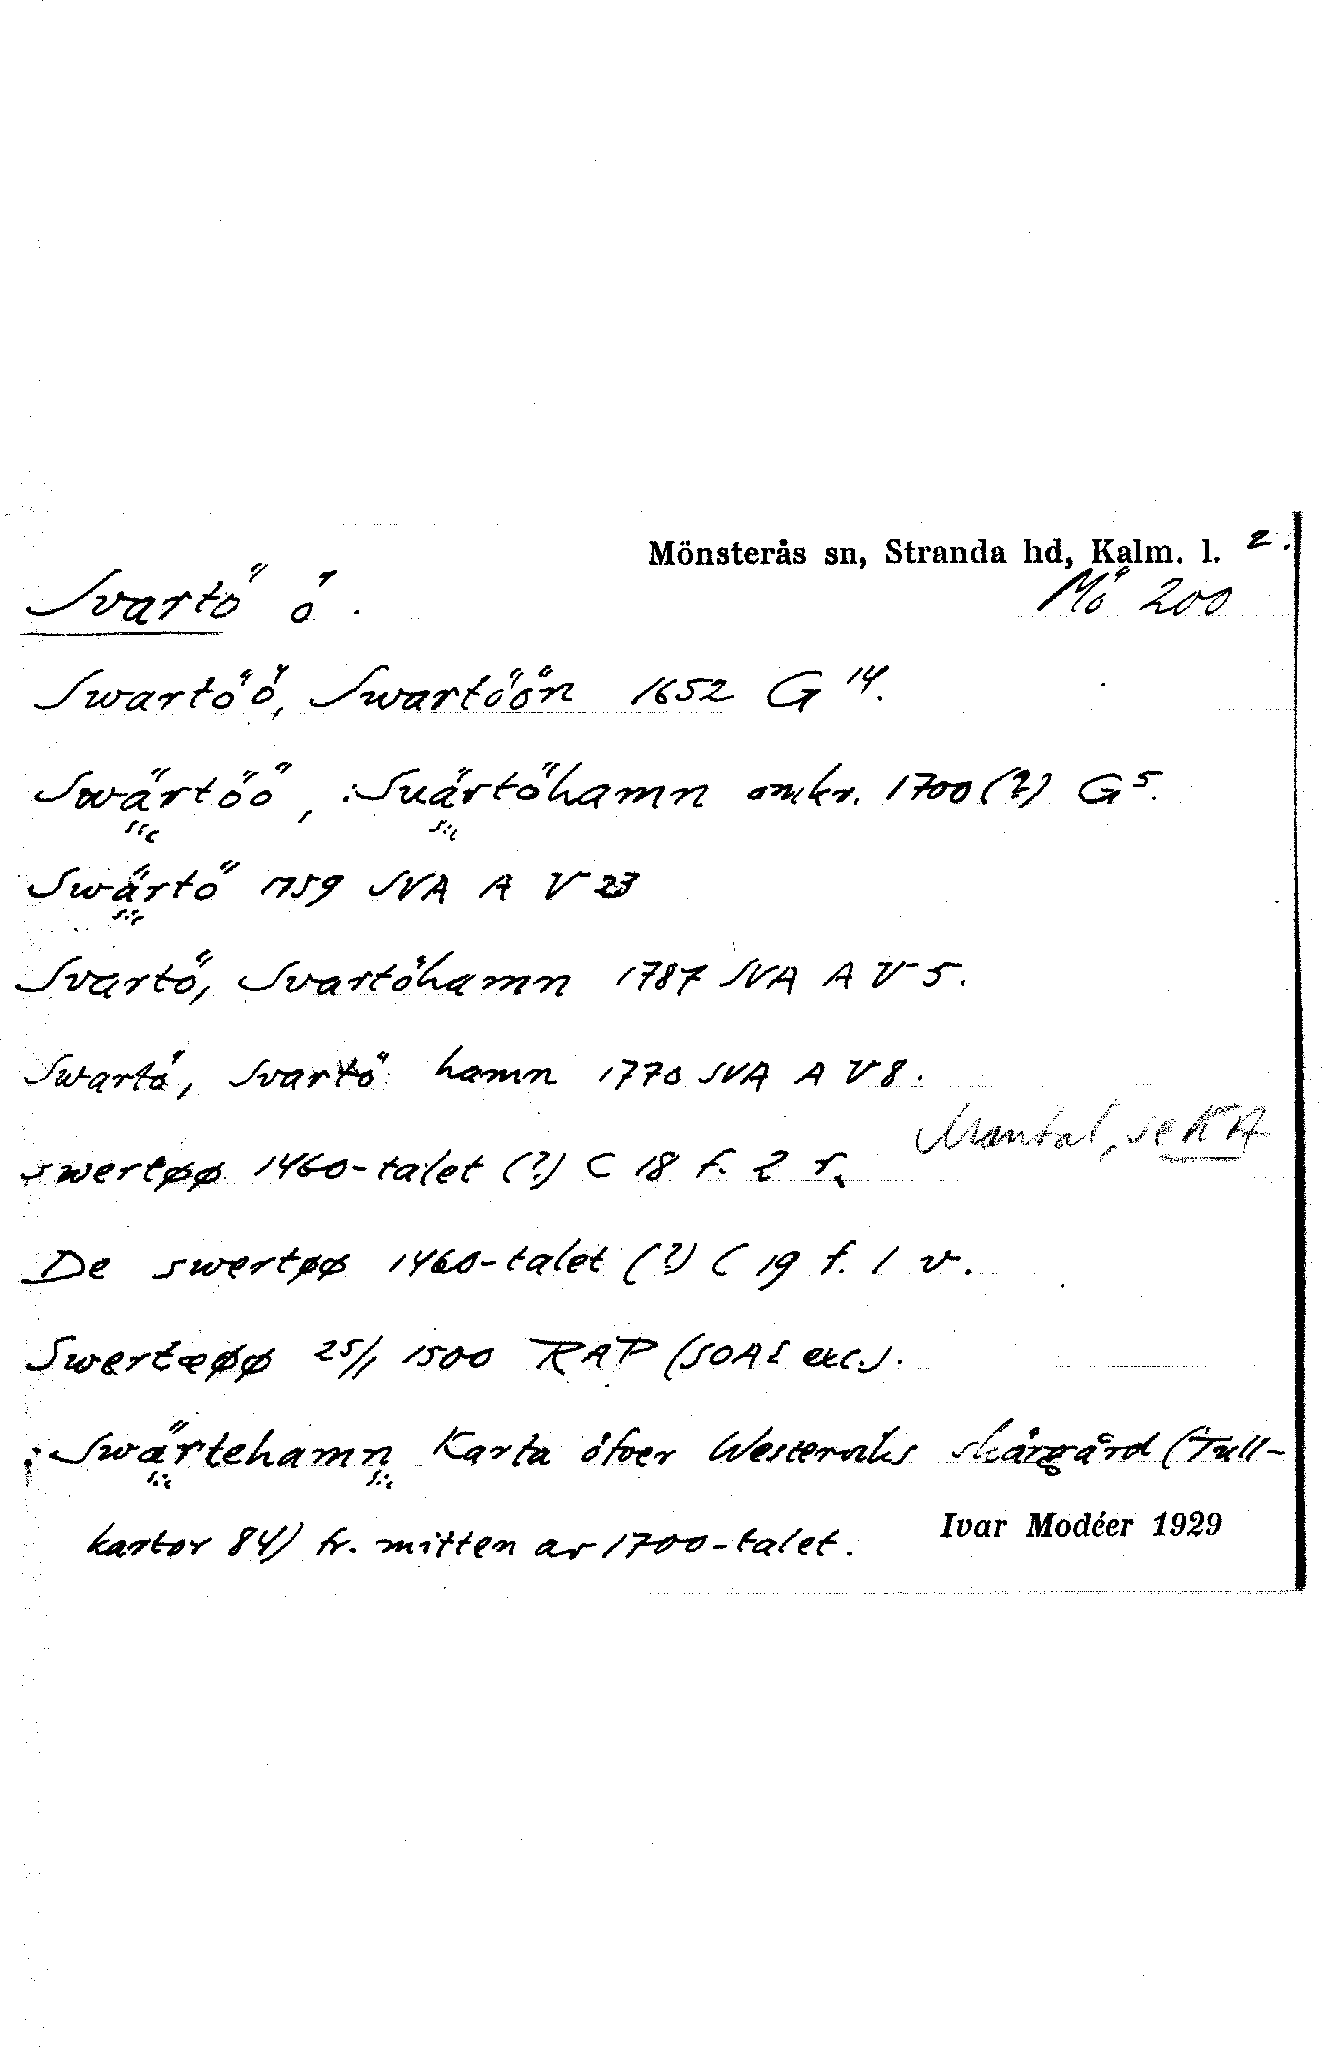 Mönsterås sn, Stranda hd, Kalm. l. 2.
Svartö ö. Mö 200
Swartöö, Swartöön 1652 G 14.
Swärtöö, Suärtöhamn omkr. 1700 (?) G 5.
sic sic
Swärtö 1759 SVA A V 23
sic
Svartö, Svartöhamn 1787 SVA A V 5.
Swartö, Svartö hamn 1770 SVA A V 8.
Mantal, se KA
swertøø 1460-talet (?) C 18 f. 2 r.
De swertøø 1460-talet (?) C 19 f. 1 v.
Swertæøø 25/1 1500 RAP (SOAS exc.).
Swärtehamn Karta öfver Westerviks skärgård (Tull-
sic sic
kartor 84) fr. mitten av 1700-talet.
Ivar Modéer 1929